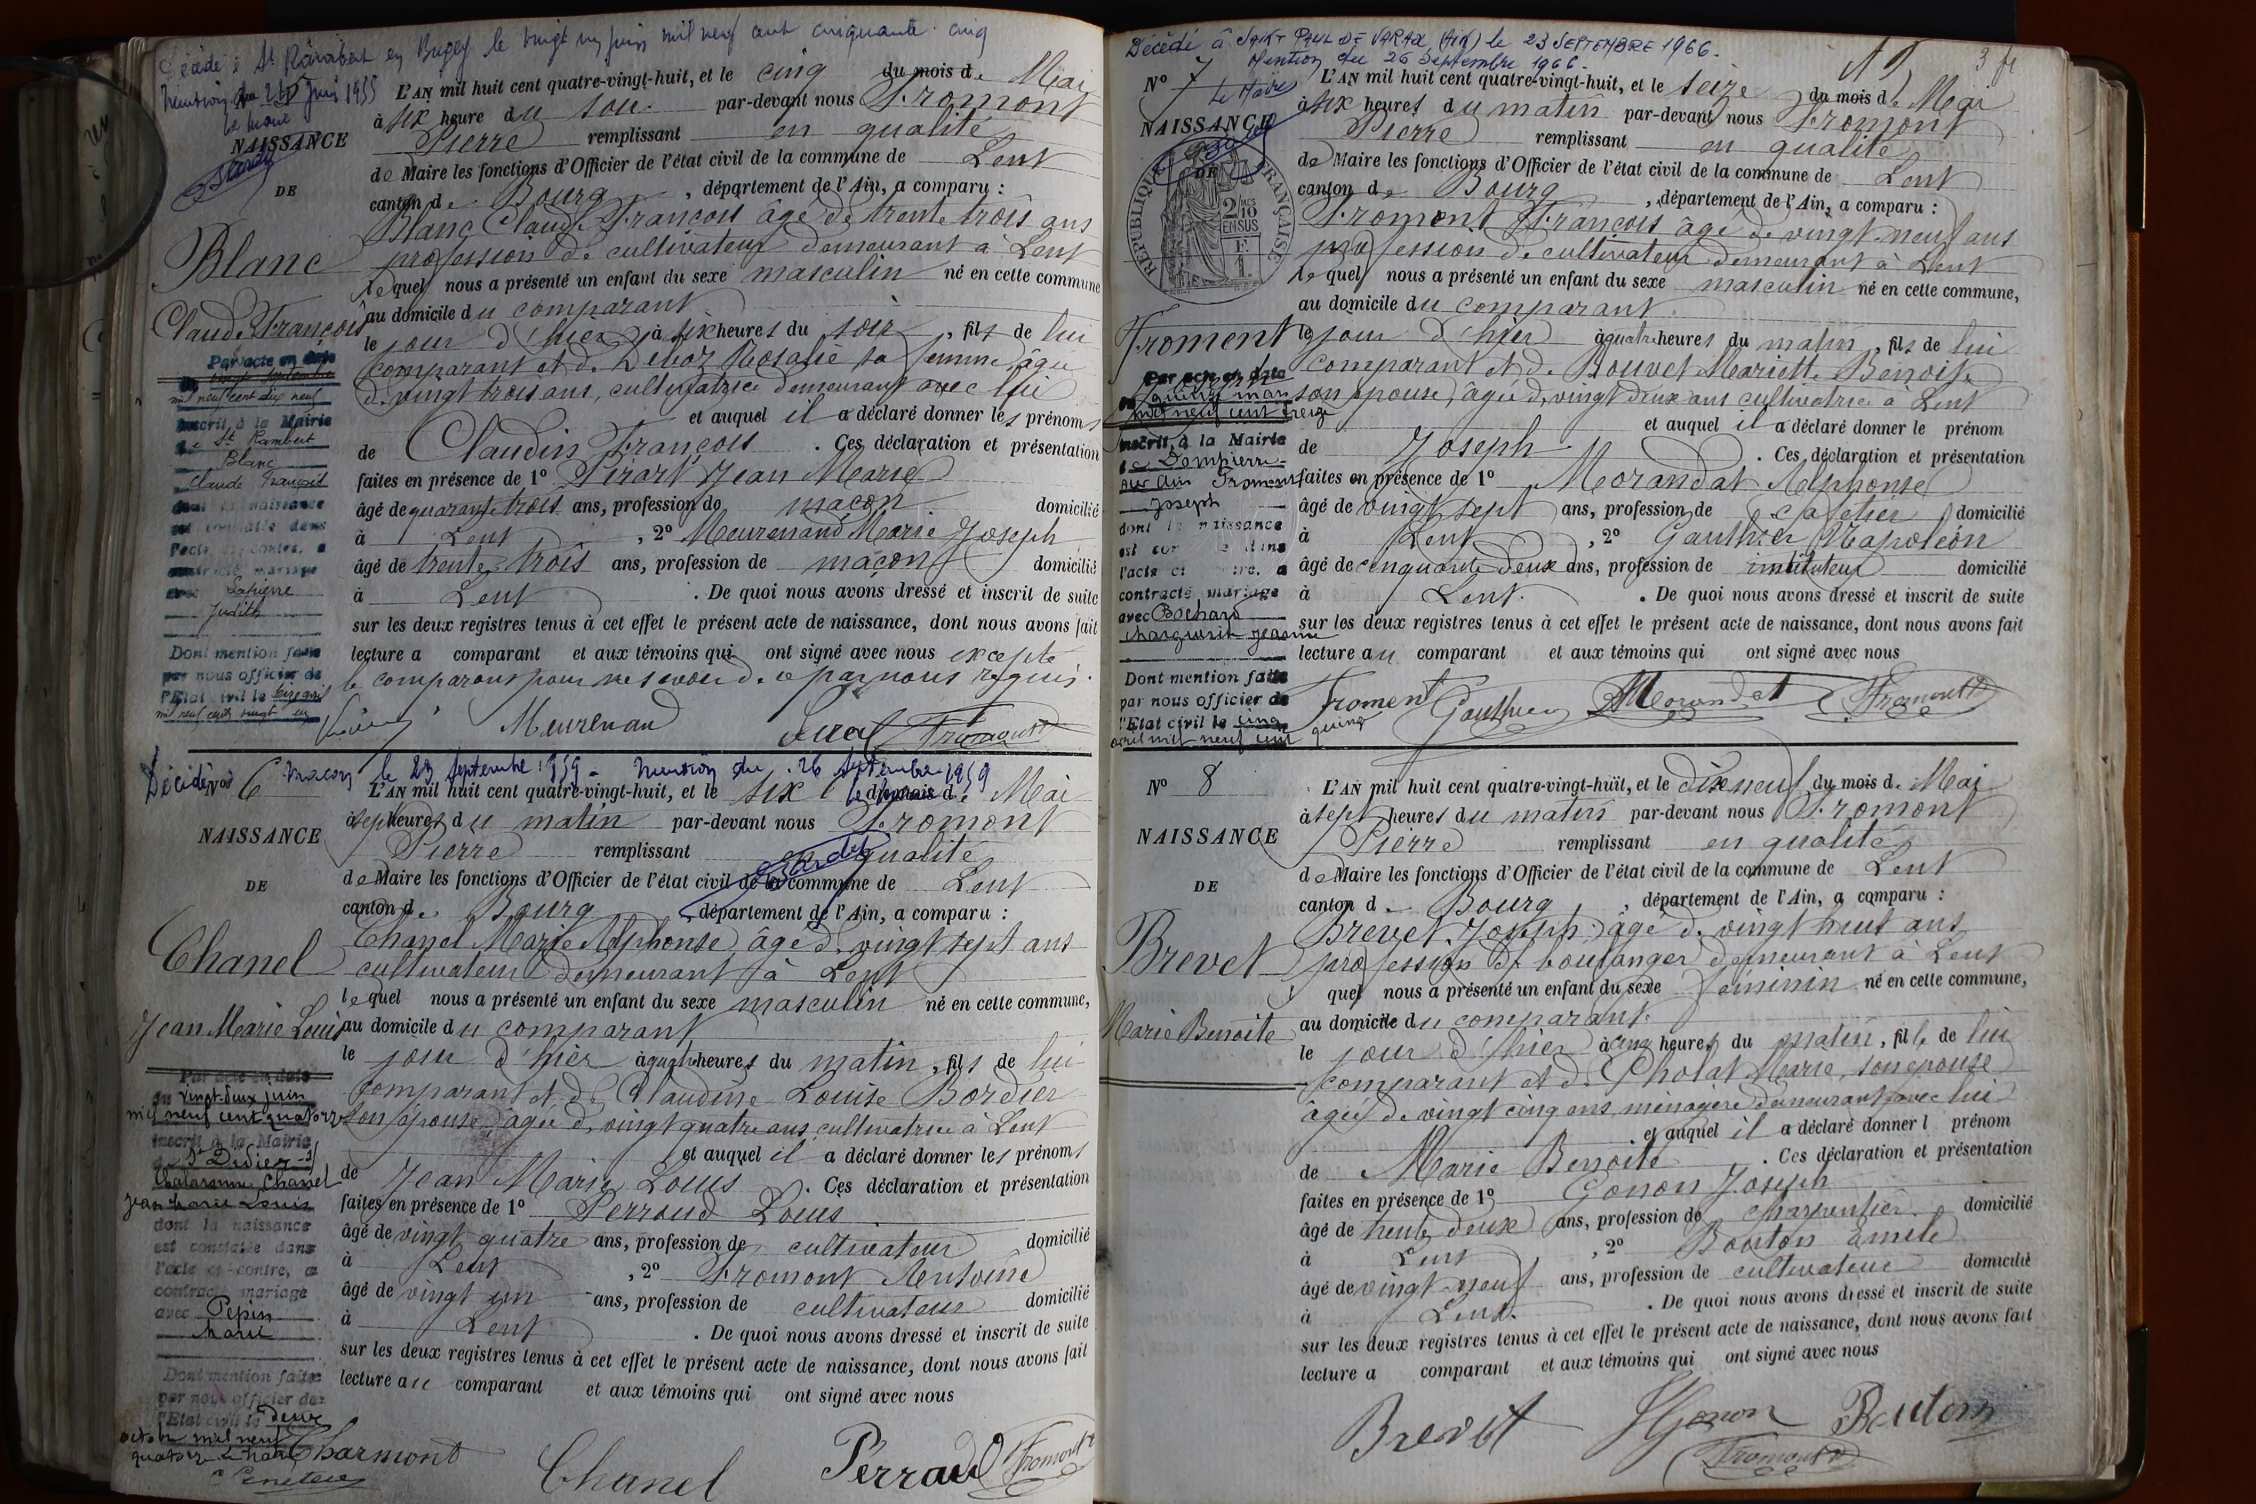 Décédé à St Rambert en Bugey le vingt un juin mil neuf cent cinquante-cinq
Mention du 24 Juin 1955
Le Maire
NAISSANCE
DE
Blanc
Claude François
Par acte en date
mil neuf cent dix neuf
inscrit à la Mairie
de St Rambert
Blanc
Claude François
dont la naissance
est constatée dans
l'acte ci-contre, a
contracté mariage
avec Lapierre
Judith
Dont mention faite
par nous officier de
l'Etat civil le
mil neuf cent vingt un
L'AN mil huit cent quatre-vingt-huit, et le cinq du mois de Mai
à six heures du soir par-devant nous Fromont
Pierre remplissant en qualité
de Maire les fonctions d'Officier de l'état civil de la commune de Lent
canton de Bourg, département de l'Ain, a comparu :
Blanc Claude François âgé de trente trois ans
profession de cultivateur demeurant à Lent
lequel nous a présenté un enfant du sexe masculin né en cette commune
au domicile du comparant
le jour d'hier à six heures du soir, fils de lui
comparant et de Rosalie sa femme âgée
de vingt trois ans, cultivatrice demeurant avec lui
et auquel il a déclaré donner les prénoms
de Claudin François. Ces déclaration et présentation
faites en présence de 1º Jean Marie
âgé de quarante trois ans, profession de maçon domicilié
à Lent, 2º Meurenand Marie Joseph
âgé de trente trois ans, profession de maçon domicilié
à Lent. De quoi nous avons dressé et inscrit de suite
sur les deux registres tenus à cet effet le présent acte de naissance, dont nous avons fait
lecture a comparant et aux témoins qui ont signé avec nous excepté
le comparant pour ne savoir de ce par nous requis.
Meurenand Fromont
Décédé à Macon le 23 Septembre 1959 - Mention du 26 Septembre 1959
Nº 6
NAISSANCE
DE
Chanel
Jean Marie Louis
Par acte en date
du vingt-deux juin
mil neuf cent quatorze
inscrit à la Mairie
de St Didier s/
Chalaronne Chanel
Jean Marie Louis
dont la naissance
est constatée dans
l'acte ci-contre, a
contracté mariage
avec Pépin
Marie
Dont mention faite
par nous officier de
l'Etat civil le deux
octobre mil neuf
quatorze
L'AN mil huit cent quatre-vingt-huit, et le six du mois de Mai
à sept heures du matin par-devant nous Fromont
Pierre remplissant en qualité
de Maire les fonctions d'Officier de l'état civil de la commune de Lent
canton de Bourg, département de l'Ain, a comparu :
Chanel Marie Alphonse âgé de vingt sept ans
cultivateur demeurant à Lent
lequel nous a présenté un enfant du sexe masculin né en cette commune,
au domicile du comparant
le jour d'hier à quatre heures du matin, fils de lui
comparant et de Claudine Louise Bordier
son épouse âgée de vingt quatre ans cultivatrice à Lent
et auquel il a déclaré donner les prénoms
de Jean Marie Louis. Ces déclaration et présentation
faites en présence de 1º Perroud Louis
âgé de vingt quatre ans, profession de cultivateur domicilié
à Lent, 2º Fromont Antoine
âgé de vingt un ans, profession de cultivateur domicilié
à Lent. De quoi nous avons dressé et inscrit de suite
sur les deux registres tenus à cet effet le présent acte de naissance, dont nous avons fait
lecture au comparant et aux témoins qui ont signé avec nous
Charmont Chanel Perraud Fromont
Décédé à SAINT PAUL DE VARAX (AIN) le 23 SEPTEMBRE 1966.
Mention du 26 Septembre 1966.
Le Maire
Nº 7
NAISSANCE
DE
RÉPUBLIQUE FRANÇAISE
2/10 EN SUS
Froment
Par acte en date
du quinze mars
mil neuf cent treize
inscrit à la Mairie
de Dompierre
sur Ain Froment
Joseph
dont la naissance
l'acte ci-contre, a
contracté mariage
avec Bochard
Marguerite Jeanne
Dont mention faite
par nous officier de
l'Etat civil le cinq
avril mil neuf cent quinze
L'AN mil huit cent quatre-vingt-huit, et le seize du mois de Mai
à six heures du matin par-devant nous Fromont
Pierre remplissant en qualité
de Maire les fonctions d'Officier de l'état civil de la commune de Lent
canton de Bourg, département de l'Ain, a comparu :
Fromont François âgé de vingt-neuf ans
profession de cultivateur demeurant à Lent
lequel nous a présenté un enfant du sexe masculin né en cette commune,
au domicile du comparant
le jour d'hier à quatre heures du matin, fils de lui
comparant et de Bouvet Mariette Benoite
son épouse, âgée de vingt deux ans cultivatrice à Lent
et auquel il a déclaré donner le prénom
de Joseph. Ces déclaration et présentation
faites en présence de 1º Morandat Alphonse
âgé de vingt sept ans, profession de domicilié
à Lent, 2º Gauthier Napoléon
âgé de cinquante deux ans, profession de instituteur domicilié
à Lent. De quoi nous avons dressé et inscrit de suite
sur les deux registres tenus à cet effet le présent acte de naissance, dont nous avons fait
lecture au comparant et aux témoins qui ont signé avec nous
Froment Gauthier Morandat Fromont
Nº 8
NAISSANCE
DE
Brevet
Marie Benoite
L'AN mil huit cent quatre-vingt-huit, et le dix neuf du mois de Mai
à sept heures du matin par-devant nous Fromont
Pierre remplissant en qualité
de Maire les fonctions d'Officier de l'état civil de la commune de Lent
canton de Bourg, département de l'Ain, a comparu :
Brevet Joseph âgé de vingt huit ans
profession de boulanger demeurant à Lent
quel nous a présenté un enfant du sexe féminin né en cette commune,
au domicile du comparant
le jour d'hier à cinq heures du matin, fille de lui
comparant et de Cholat Marie, son épouse
âgée de vingt cinq ans ménagère demeurant avec lui
et auquel il a déclaré donner l prénom
de Marie Benoite. Ces déclaration et présentation
faites en présence de 1º Gonon Joseph
âgé de trente deux ans, profession de charpentier domicilié
à Lent, 2º Bouton Emile
âgé de vingt neuf ans, profession de cultivateur domicilié
à Lent. De quoi nous avons dressé et inscrit de suite
sur les deux registres tenus à cet effet le présent acte de naissance, dont nous avons fait
lecture a comparant et aux témoins qui ont signé avec nous
Brevet Gonon Bouton
Fromont